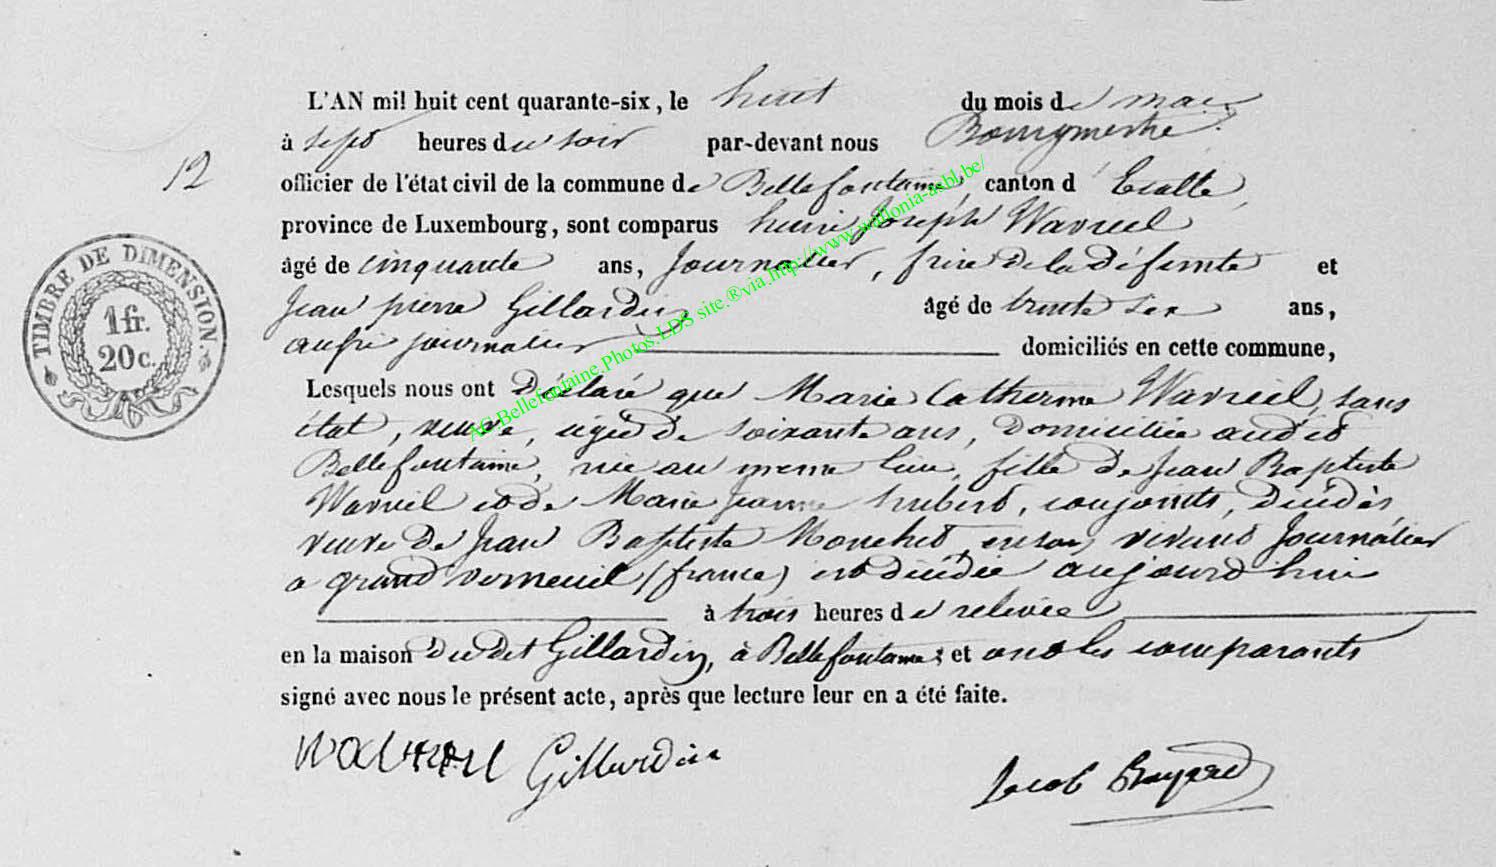 L'AN mil huit cent quarante-six, le huit du mois de mai
à sept heures du soir par-devant nous Bourgmestre
12
officier de l'état civil de la commune de Bellefontaine, canton d'Etalle,
province de Luxembourg, sont comparus henri Joseph Wavreil
âgé de cinquante ans, Journalier, frère de la défunte et
Jean pierre Gillardin âgé de trente six ans,
aussi journalier domiciliés en cette commune,
TIMBRE DE DIMENSION
1 fr.
20 c.
Lesquels nous ont Déclaré que Marie Catherine Wavreil, sans
état, veuve, agée de soixante ans, Domiciliée audit
Bellefontaine, née au meme lieu, fille de Jean Baptiste
Wavreil et de Marie Jeanne hubert, conjoints, décédés
veuve de Jean Baptiste Monchet en son vivant Journalier
a grand verneuil (france) est décédée aujourd'hui
à trois heures de relevée
en la maison Dudit Gillardin, à Bellefontaine; et ont les comparants
signé avec nous le présent acte, après que lecture leur en a été faite.
Gillardin
Jacob
AC.Bellefontaine.Photos.LDS site.®via.http://www.wallonia-asbl.be/